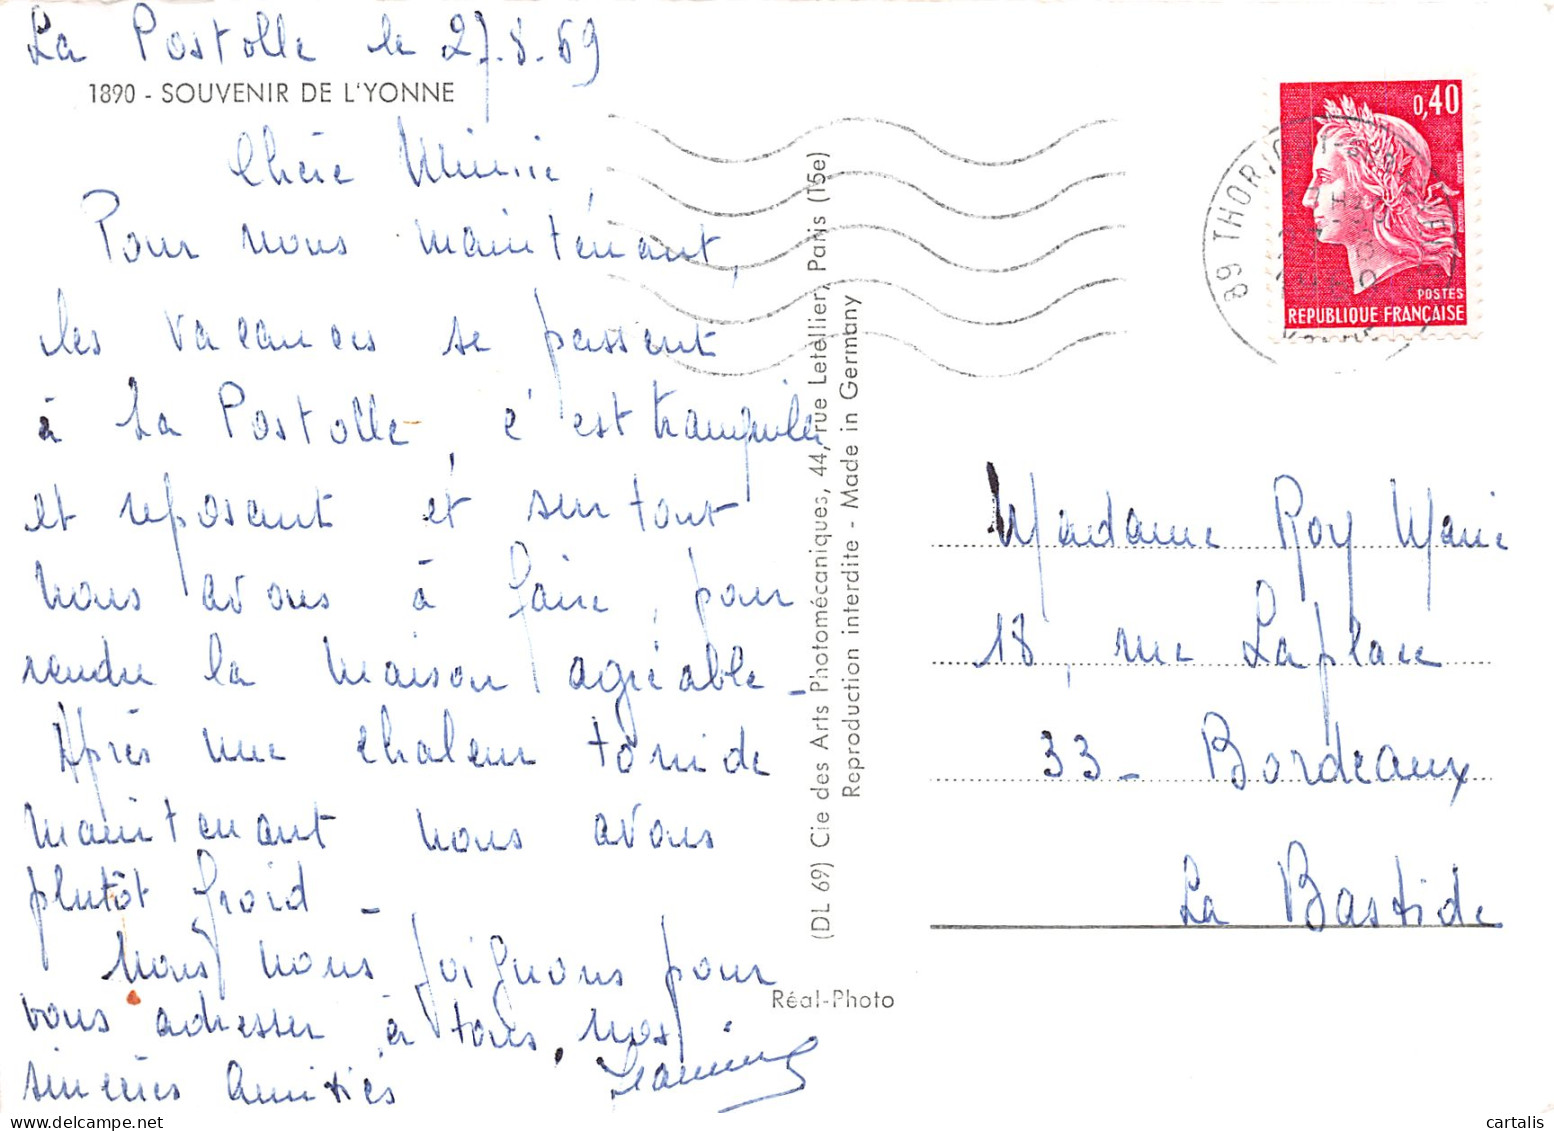 La Postolle le 27.8.69
1890 - SOUVENIR DE L'YONNE
Chère Minie,
Pour nous maintenant,
les vacances se passent
à La Postolle, c'est tranquille
et reposant et surtout
nous avons à faire, pour
rendre la maison agréable_
Après une chaleur torride
maintenant nous avons
plutôt froid_
Nous nous joignons pour
vous adresser à tous, nos
sincères Amitiés
Jeannine
(DL 69) Cie des Arts Photomécaniques, 44, rue Letellier, Paris (15e)
Reproduction interdite - Made in Germany
Réal-Photo
89 THORIGNY
0,40
POSTES
REPUBLIQUE FRANÇAISE
Madame Roy Marie
18, rue Laplace
33_ Bordeaux
La Bastide
cartalis